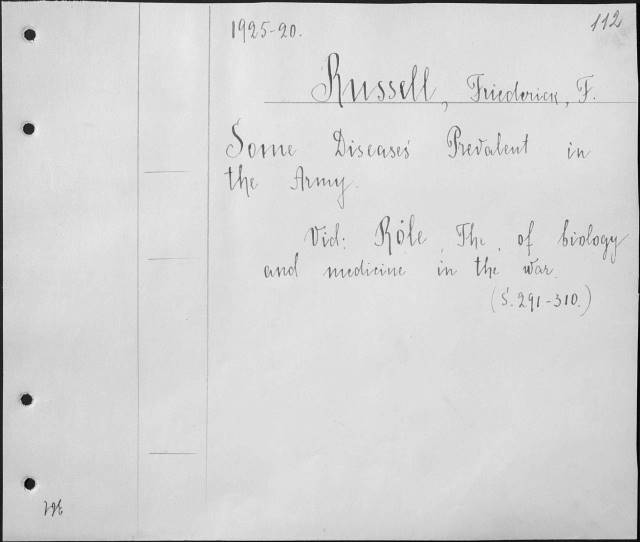 1925-20.
112
Russell, Friederick, F.
Some Diseases Prevalent in
the Army.
Vid: Róle, The, of biology
and medicine in the war.
(S. 291-310.)